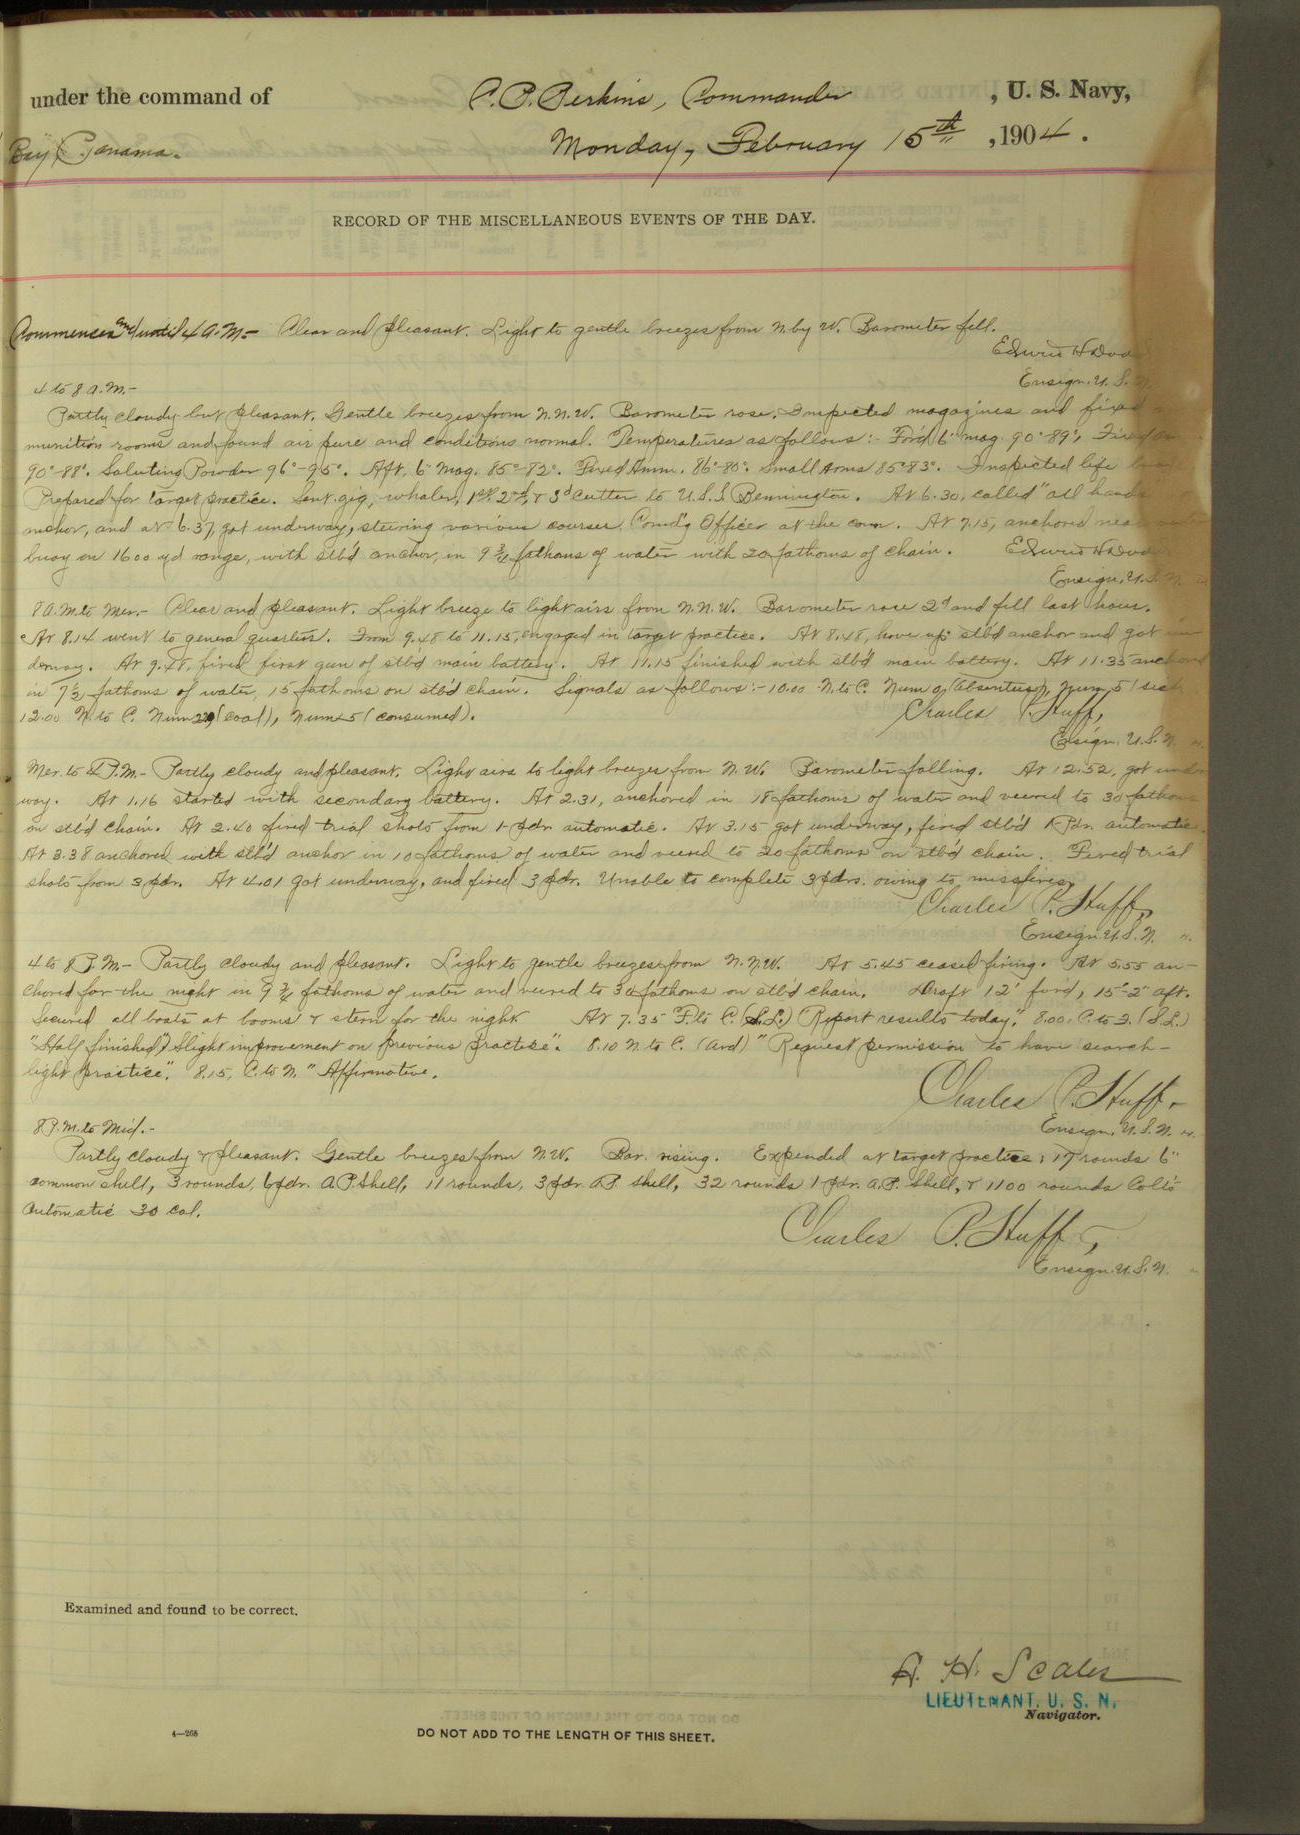 under the command of C. P. Perkins, Commander, U. S. Navy,
Bay, Panama. Monday, February 15th, 1904.
RECORD OF THE MISCELLANEOUS EVENTS OF THE DAY.
Commences and until 4 A.M.- Clear and pleasant. Light to gentle breezes from N. by W. Barometer fell.
Edwin H Dodd
Ensign. U. S. N.
4 to 8 A.M.-
Partly cloudy but pleasant. Gentle breezes from N.N.W. Barometer rose. Inspected magazines and fixed
munition rooms and found air pure and conditions normal. Temperatures as follows:- For'd 6" mag. 90°-89°, Fixed
90°-88°. Saluting Powder 96°-95°. Aft. 6" Mag. 85°-82°. Fixed Amm. 86°-80°. Small Arms 85°83°. Inspected life
Prepared for target practice. Sent gig, whaler, 1st, 2nd, & 3d cutter to U.S.S. Bennington. At 6.30, called "all hands
anchor, and at 6.37, got underway, steering various courses, Com'd'g Officer at the conn. At 7.15, anchored near
buoy on 1600 yd range, with stb'd anchor, in 9 3/4 fathoms of water with 20 fathoms of chain. Edwin H Dodd
Ensign, U. S. N.
8 A.M. to Mer.- Clear and pleasant. Light breeze to light airs from N.N.W. Barometer rose 2d and fell last hour.
At 8.14 went to general quarters. From 9.48 to 11.15, engaged in target practice. At 8.48, hove up stb'd anchor and got un
derway. At 9.48, fired first gun of stb'd main battery. At 11.15 finished with stb'd main battery. At 11.35 anchored
in 7 1/2 fathoms of water, 15 fathoms on stb'd chain. Signals as follows:- 10.00 N. to C. Num 0 (absentees), Num 5 (sick
12.00 N. to C. Num 29 (coal), Num 25 (consumed). Charles P. Huff,
Ensign. U. S. N.
Mer. to 4 P.M.- Partly cloudy and pleasant. Light airs to light breezes from N.W. Barometer falling. At 12.52, got under
way. At 1.16 started with secondary battery. At 2.31, anchored in 18 fathoms of water and veered to 30 fathoms
on stb'd chain. At 2.40 fired trial shots from 1-pdr. automatic. At 3.15 got underway, fired stb'd 1 Pdr. automatic.
At 3.38 anchored with stb'd anchor in 10 fathoms of water and veered to 20 fathoms on stb'd chain. Fired trial
shots from 3 pdr. At 4.01 got underway, and fired 3 pdr. Unable to complete 3 pdrs. owing to missfires.
Charles P. Huff,
Ensign. U. S. N.
4 to 8 P.M.- Partly cloudy and pleasant. Light to gentle breezes from N.N.W. At 5.45 ceased firing. At 5.55 an-
chored for the night in 9 3/4 fathoms of water and veered to 30 fathoms on stb'd chain. Draft 12' ford, 15'-2" aft.
Secured all boats at booms & stern for the night At 7.35 F. to C. (S.L.) "Report results today". 8.00, C. to F. (S.L.)
"Half finished, Slight improvement on previous practice". 8.10 N. to C. (Ard) "Request permission to have search-
light practice." 8.15, C. to N. "Affirmative.
Charles P. Huff,
Ensign. U. S. N.
8 P.M. to Mid.-
Partly cloudy & pleasant. Gentle breezes from N.W. Bar. rising. Expended at target practice; 17 rounds 6"
common shell, 3 rounds, 6 pdr. A.P. Shell, 11 rounds, 3 pdr. A.P. shell, 32 rounds 1 pdr. A.P. Shell, & 1100 rounds Colt's
Automatic 30 cal.
Charles P. Huff,
Ensign. U. S. N.
Examined and found to be correct.
A. H. Scales
LIEUTENANT, U. S. N.
Navigator.
4—268
DO NOT ADD TO THE LENGTH OF THIS SHEET.